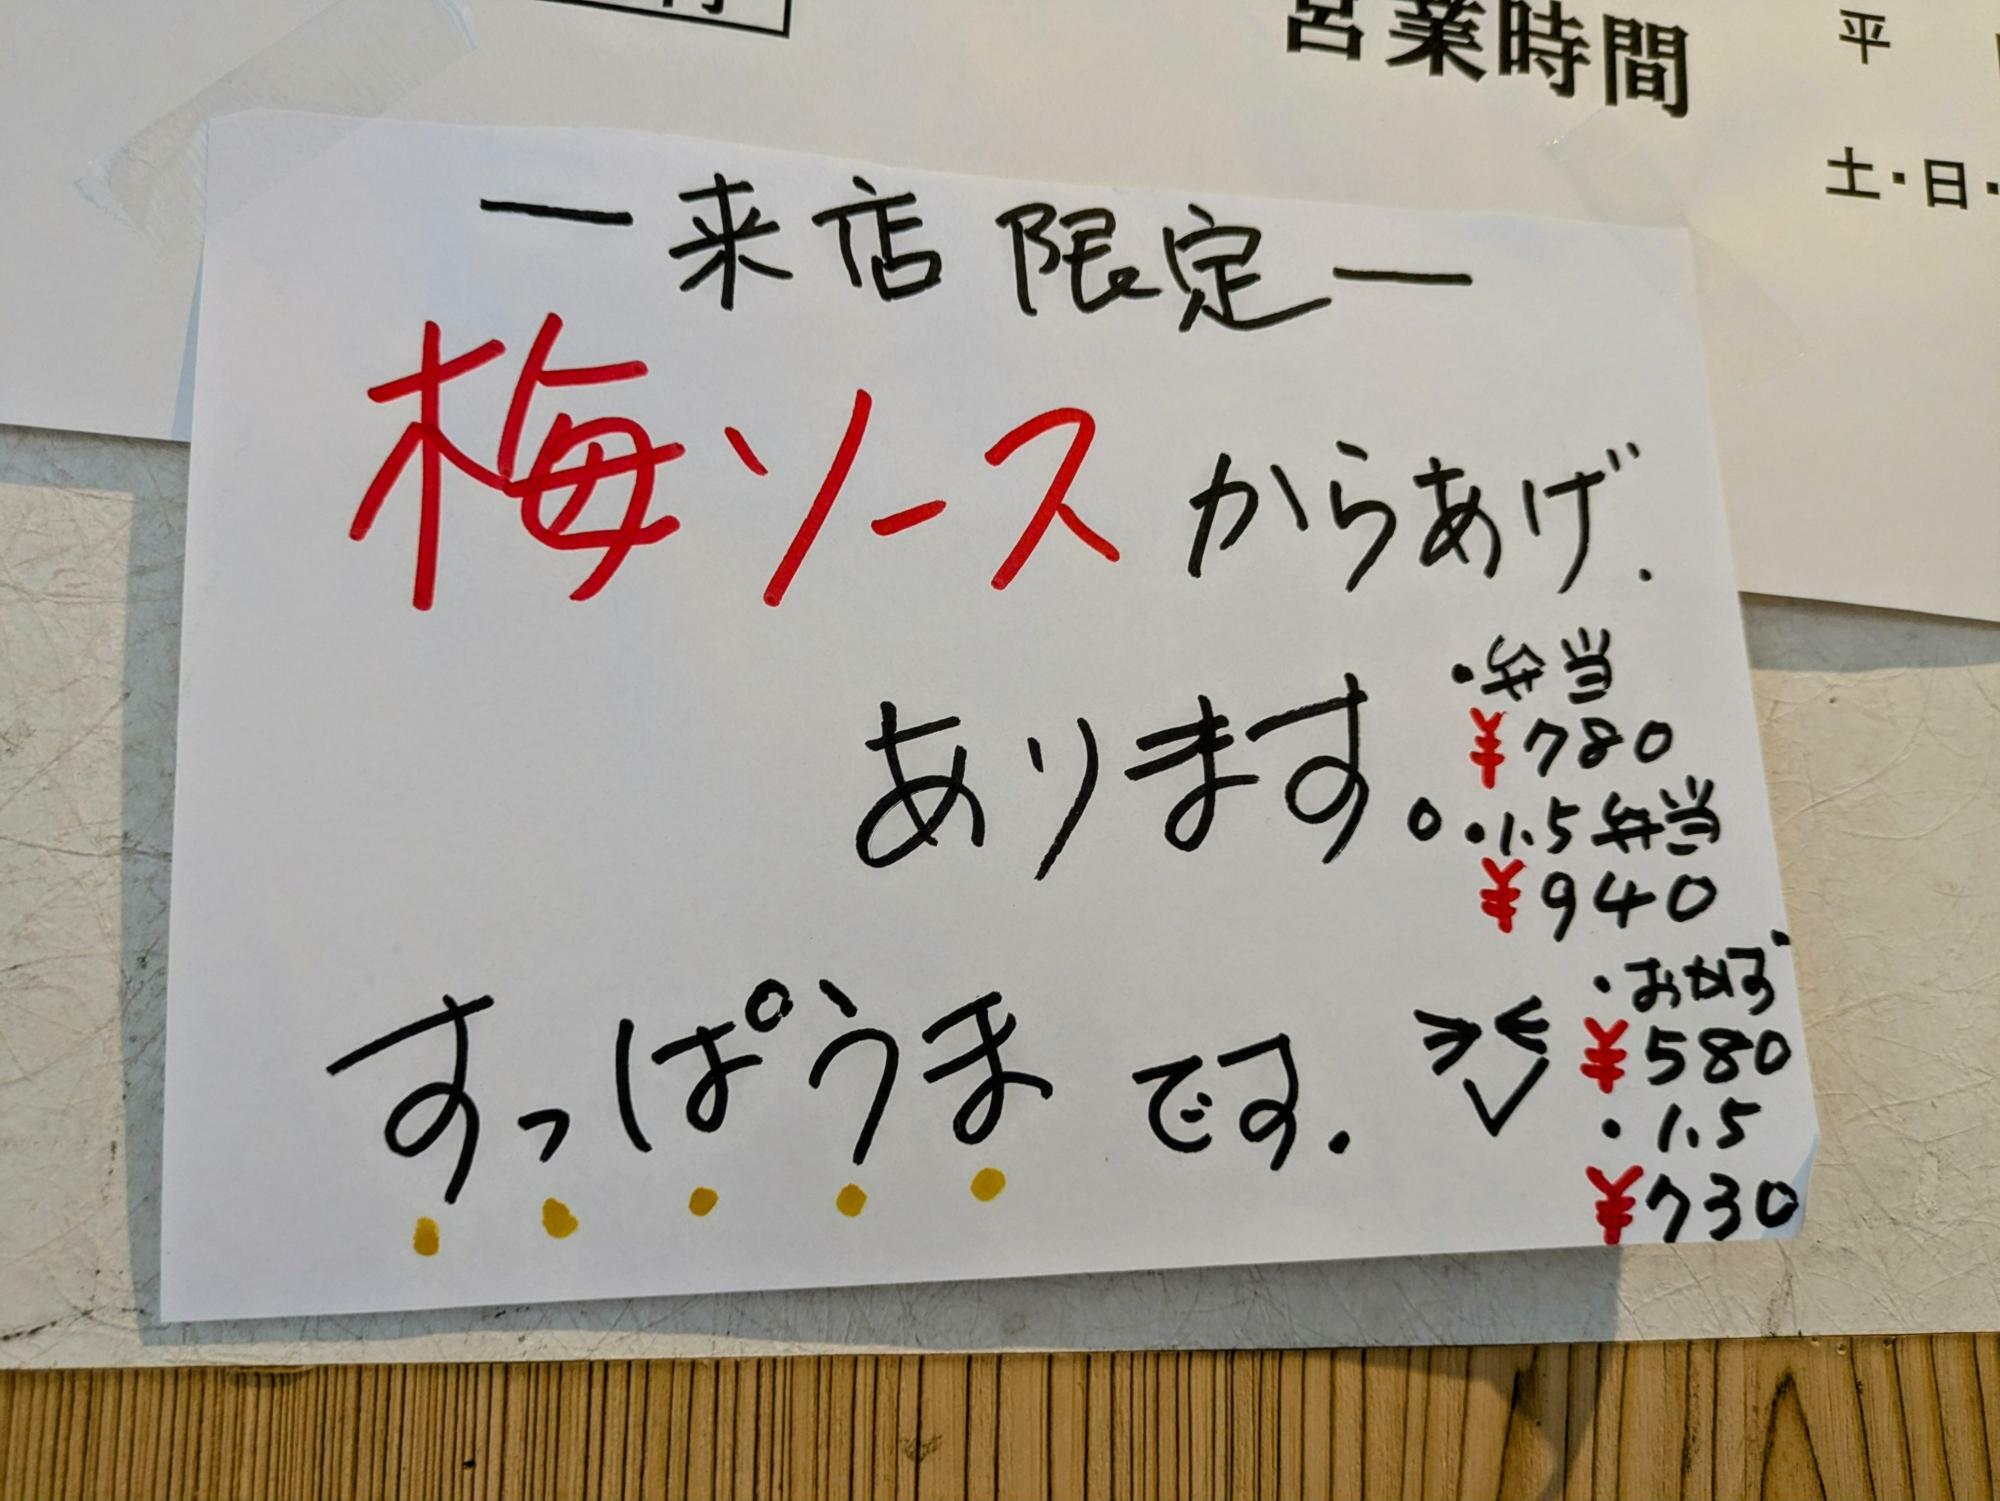 営業時間
平
土・日・
ー来店限定ー
梅ソースからあげ.
あります。
すっぱうまです.
・弁当
¥780
・1.5弁当
¥940
・おかず
¥580
・1.5
¥730